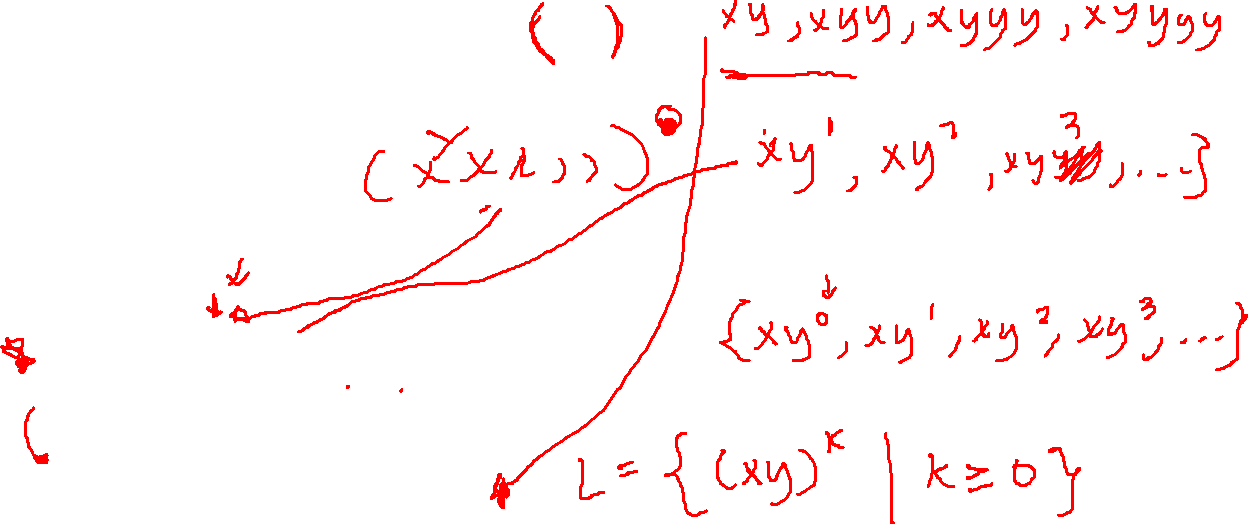 ( ) xy, xyy, xyyy, xyyyy
xy¹, xy², xy³, ...}
{xy⁰, xy¹, xy², xy³, ...}
L = {(xy)ᴷ | K ≥ 0}